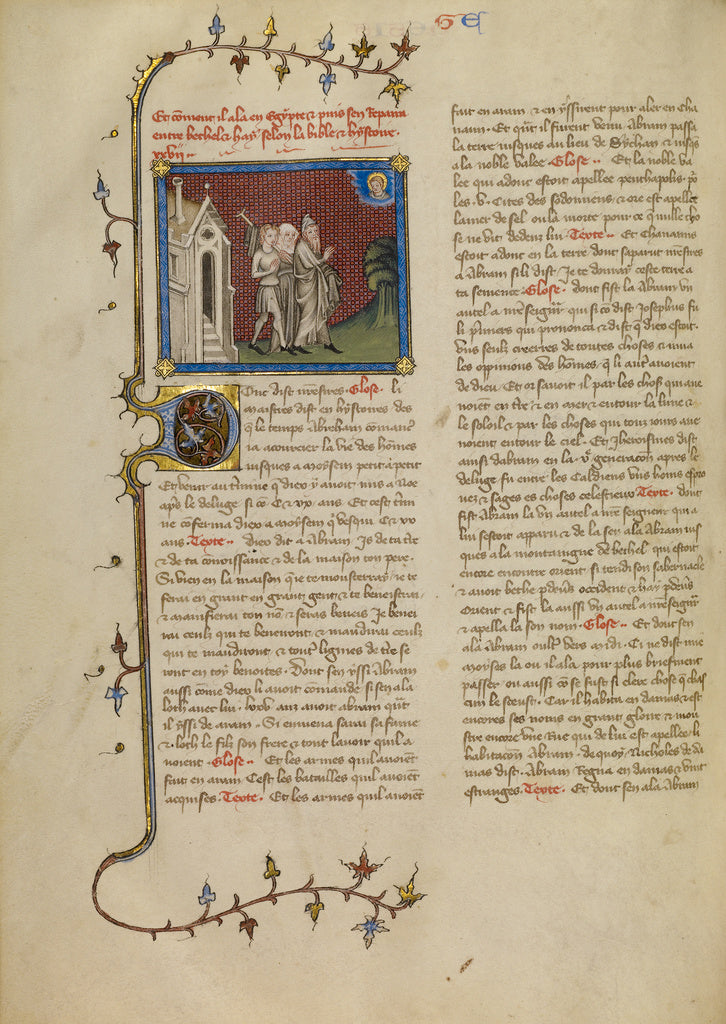 GE
Et coment il ala en Egypte & puis sen repaira
entre bethel & hay selon la bible & hystoire
xxvii
Donc dist nrestres. Glose. li
maistres dist en hystoires des
q le temps Abreham comanca
ia acourcier la vie des homes
iusques a moysem petit a petit
Et venir au termine que dieu y auoit mis a Noe
aps le deluge si co C & xx ans. Et cest term
ne conferma dieu a moysem q vesqui C & xx
ans. Texte. dieu dit a Abram. Is de ta tre
& de ta connoissance & de la maison ton pere.
Si vien en la maison que ie te mousterray. ie te
feray en grant en grant gent & te beneistrai
& manifierai ton no & seras beneis Ie benei
rai ceulz qui te beneiront & maudirai ceulz
qui te maudiront & tout lignies de tre se
ront en toy benoites. Dont sen yssi Abram
aussi come dieu li auoit comande si sen ala
loth auec lui. lxxv ans auoit abram qut
il yssi de aram. Si enmena sarai sa fame
& loth le filz son frere & tout lauoir quil a
uoient Glose. Et les armes quil auoient
fait en aram Cest les batailles quil auoient
acquises. Texte. Et les armes quil auoient
fait en aram. & en yssirent pour aler en Cha
naam. Et qut il furent venu Abram passa
la terre iusques au lieu de Sychan & iusqs
a la noble valee Glose. Et la noble va
lee qui adonc estoit apellee penthapolis. po
les .v. Cites des sodomiens, & ore est apellee
lamer de sel ou la morte pour ce q nulle cho
se ne vit dedenz lui. Texte. Et Chanaans
estoit adonc en la terre dont saparut nrestres
a Abram si li dist. Ie te donray ceste terre a
ta semence Glose. dont fist la Abram vn
autel a nre seigneur qui si co dist Iosephus fu
li pmiers qui prononca & dist q dieu estoit
vns seulz creerres de toutes choses & mua
les oppinions des homes q li aut auoient
de dieu. Et ce sauoit il par les choses qui aue
noient en tre & en mer & entour la lune &
le soloil & par les choses qui touz iours aue
noient entour le ciel. Et Iherosismes dist
ainsi dabram en la x generacon apres le
deluge fu entre les Caldiens vns homs espro
uez & sages es choses celestieux Texte. dont
fist Abram la vn autel a nre seigneur qui a
lui sestoit apparu & de la sen ala Abram ius
ques a la montaingne de bethel qui estoit
encore encontre orient si tendi son tabernacle
& auoit bethe pdeuers occident & hay pdeuers
Orient & fist la aussi vn autel a nre seigneur
& apella la son nom. Glose. Et dont sen
ala Abram oultre vers midi. Ci ne dist mie
moyses la ou il ala pour plus briefment
passer ou aussi co se fust si clere chose q chas
cun le seeust. Car il habita en damas & est
encores ses noms en grant gloire & mou
stre encore vne Rue qui de lui est apellee li
habitacon Abram. de quoy Nicholes de da
mas dist. Abram Regna en damas & vint
estranges. Texte. Et dont sen ala Abram